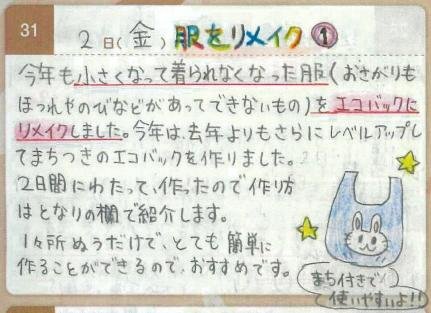 31
2日(金) 服をリメイク①
今年も小さくなって着られなくなった服(おさがりも
ほつれやのびなどがあってできないもの)をエコバックに
リメイクしました。今年は、去年よりもさらにレベルアップし
てまちつきのエコバックを作りました。
2日間にわたって、作ったので作り方
はとなりの欄で紹介します。
1ヶ所ぬうだけで、とても簡単に
作ることができるので、おすすめです。
まち付きで
使いやすいよ!!